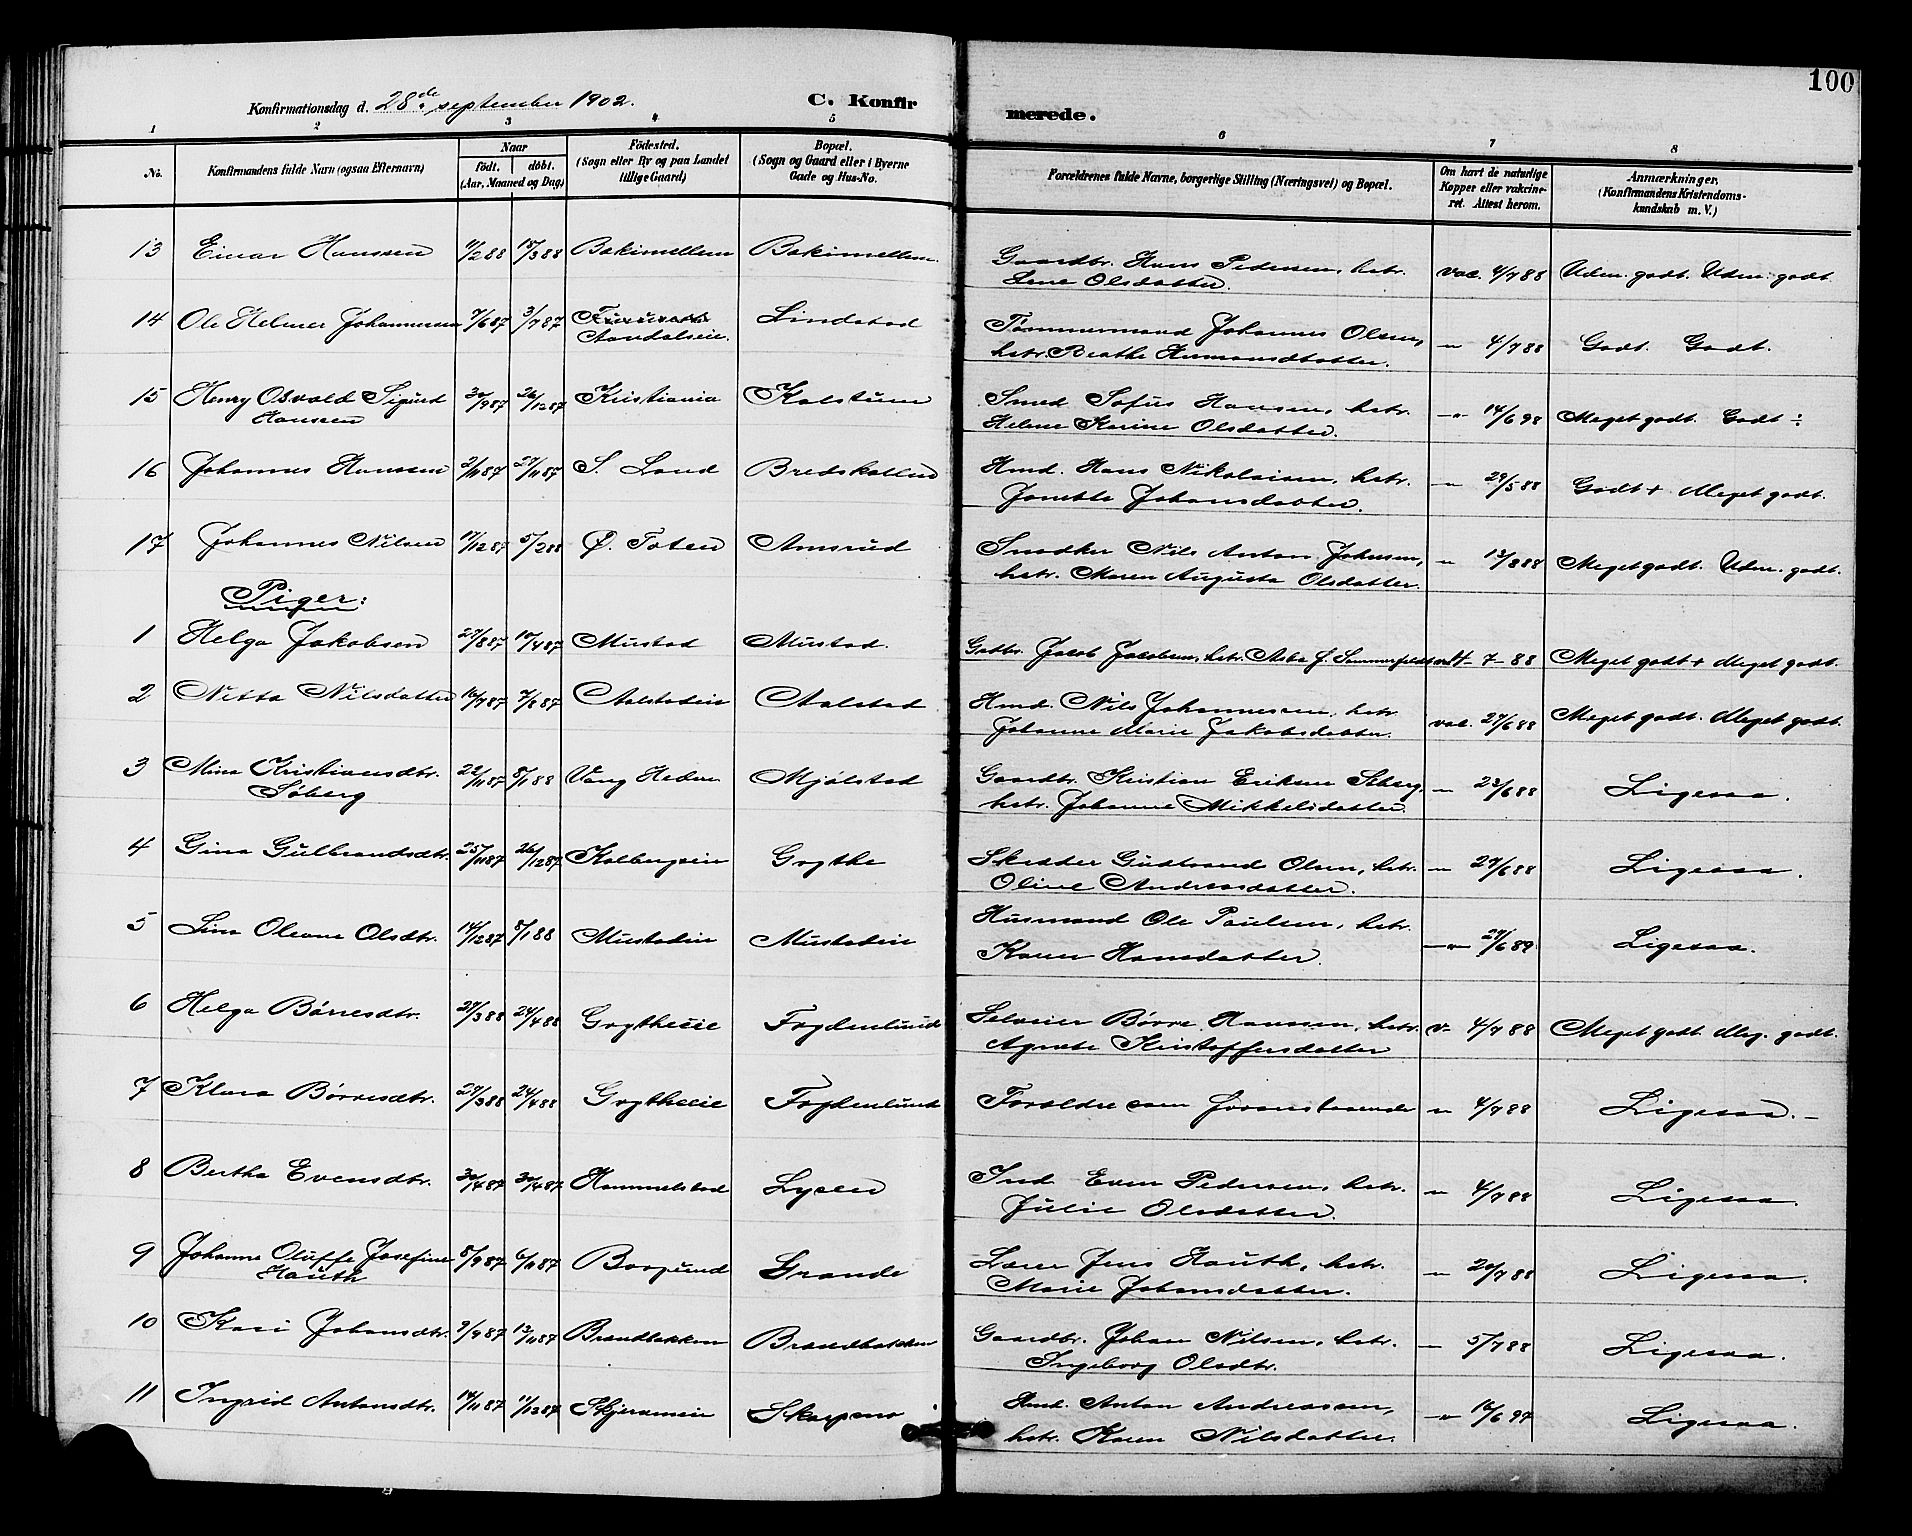 100
Konfirmationsdag d. 28de september 1902.
C. Konfirmerede.
1 2 3 4 5 6 7 8
No.
Konfirmandens fulde Navn (ogsaa Efternavn)
Naar
født. døbt.
(Aar, Maaned og Dag)
Fødested.
(Sogn eller By og paa Landet
tillige Gaard)
Bopæl.
(Sogn og Gaard eller i Byerne
Gade og Hus-No.
Forældrenes fulde Navne, borgerlige Stilling (Næringsvei) og Bopæl.
Om havt de naturlige
Kopper eller vakcine-
ret. Attest herom.
Anmærkninger,
(Konfirmandens Kristendoms-
kundskab m. V.)
13 Einar Hanssen 11/2 88 18/3 88 Bakimellem Bakimellem Gaardbr. Hans Pedersen, hstr. vac. 4/7 88 Udm. godt. Udm. godt.
Lene Olsdatter.
14 Ole Helmer Johannessen 7/6 87 3/7 87 Lindstad Tømmermand Johannes Olsen, " 4/7 88 Godt. Godt.
hstr. Beathe
15 Henry Osvald Sigurd 30/9 87 26/12 87 Kristiania Kolstum Smed Sofus Hansen, hstr. " 14/6 98 Meget godt. Godt ÷
Hanssen Helene Karine Olsdatter.
16 Johannes Hanssen 2/11 87 27/11 87 S. Land Bredskallen Hmd. Hans Nikolaisen, hstr. " 29/5 88 Godt + Meget godt.
Jonette Johansdatter.
17 Johannes Nilsen 17/12 87 5/2 88 Ø. Toten Amsrud Snedker Nils Anton Johnsen, " 13/8 88 Meget godt. Udm. godt.
hstr. Maren Augusta Olsdatter.
Piger:
1 Helga Jakobsen 27/8 87 10/4 87 Mustad Mustad. Jacob Jacobsen, hstr. Sommerfeldt 4-7-88 Meget godt + Meget godt.
2 Netta Nilsdatter 16/7 87 7/8 87 Aalstadeie Aalstad Hmd. Nils Johannessen, hstr. vac. 27/6 88 Meget godt. Meget godt.
Johanne Marie Jakobsdatter.
3 Mina Kristiansdtr. 22/11 87 8/1 88 Vang Hedm Mjølstad Gaardbr. Kristian Eriksen Søberg, " 23/6 88 Ligesaa.
Søberg hstr. Johanne Mikkelsdatter.
4 Gina Gulbrandsdtr. 25/11 87 26/12 87 Kolbergseie Grythe Skrædder Gudbrand Olsen, hstr. " 27/6 88 Ligesaa.
Oline Andreasdatter.
5 Lina Oleane Olsdtr. 14/12 87 8/1 88 Mustadeie Mustadeie Husmand Ole Paulsen, hstr. " 27/6 89. Ligesaa.
Karen Hansdatter.
6 Helga Børresdtr. 27/3 88 24/4 88 Grytheeie Frydenlund Selveier Børre Hanssen, hstr. v. 4/7 88 Meget godt. Meg. godt.
Agnete Kristoffersdatter
7 Klara Børresdtr. 27/3 88 24/4 88 Grytheeie Frydenlund Forældre som foranstaaende " 4/7 88 Ligesaa.
8 Bertha Evensdtr. 30/4 87 30/4 87 Hammelstad Lysen Ind. Even Pedersen, hstr. " 4/7 88 Ligesaa.
Julie Olsdatter.
9 Johanna Oluffe Josefine 8/9 87 6/11 87 Borgund Grande Lærer Jens Hauth, hstr. " 20/7 88 Ligesaa.
Hauth Marie Johansdatter.
10 Kari Johansdtr. 9/9 87 13/11 87 Brandbakken Brandbakken Gaardbr. Johan Nilsen, hstr. " 5/7 88 Ligesaa.
Ingeborg Olsdtr.
11 Ingrid Antonsdtr. 14/11 87 11/12 87 Skarpsno Hmd. Anton Andreassen, " 16/6 97 Ligesaa.
hstr. Karen Nilsdatter.